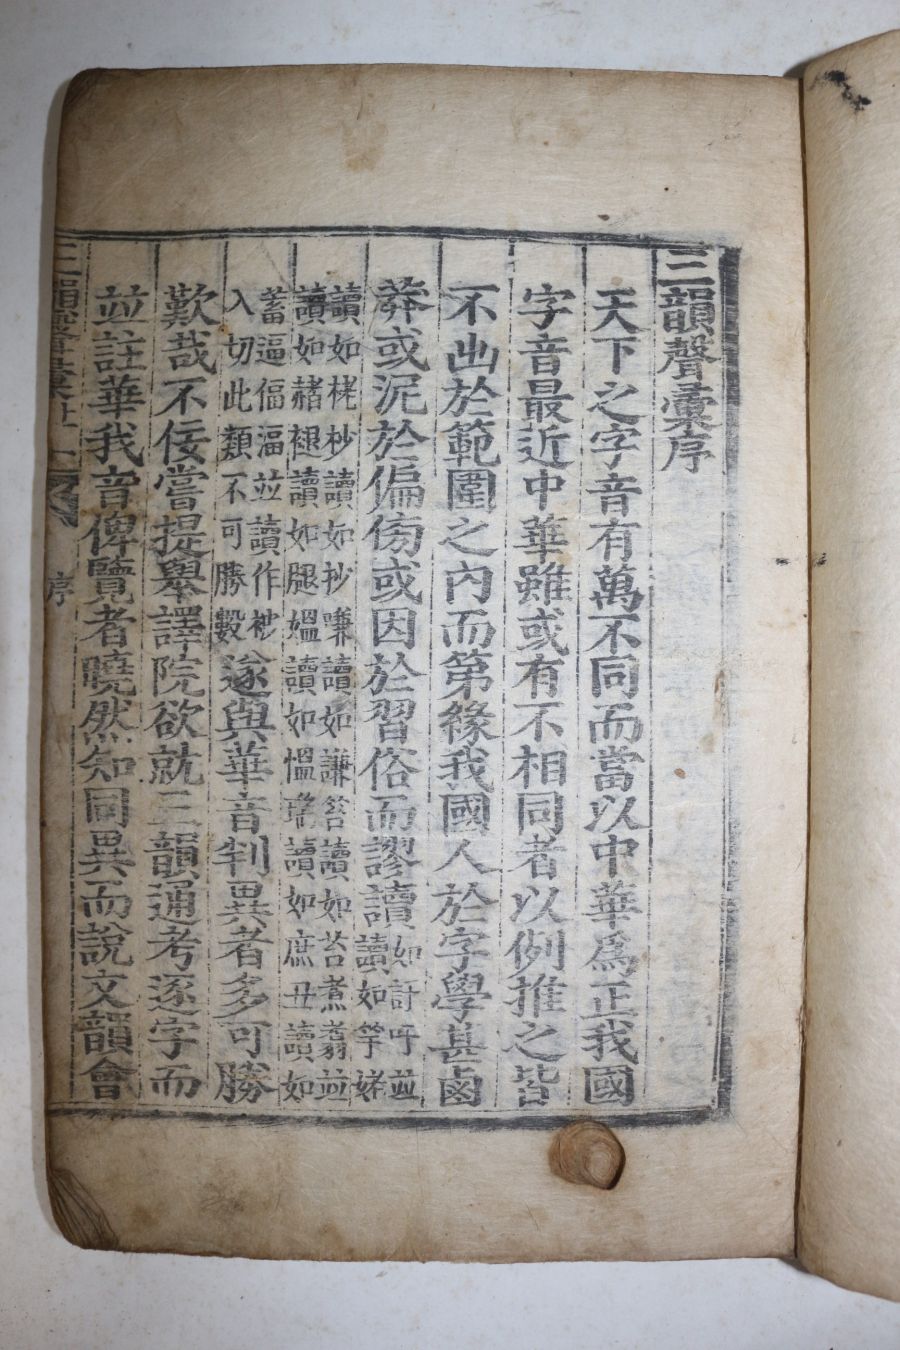 三韻聲彙序
天下之字音有萬不同而當以中華爲正我國
字音最近中華雖或有不相同者以例推之皆
不出於範圍之內而第緣我國人於字學甚鹵
莽或泥於偏傍或因於習俗而謬讀
如訏吁並
讀如竽姥
讀如栳杪讀如抄嗛讀如謙笤讀如苔煮翥並
讀如赭褪讀如腿媼讀如慍讀如庶丑讀如
蓄逼偪湢並讀作
入切此類不可勝數
遂與華音判異者多可勝
歎哉不佞嘗提擧譯院欲就三韻通考逐字而
並註華我音俾覽者曉然知同異而說文韻會
三韻聲彙 序